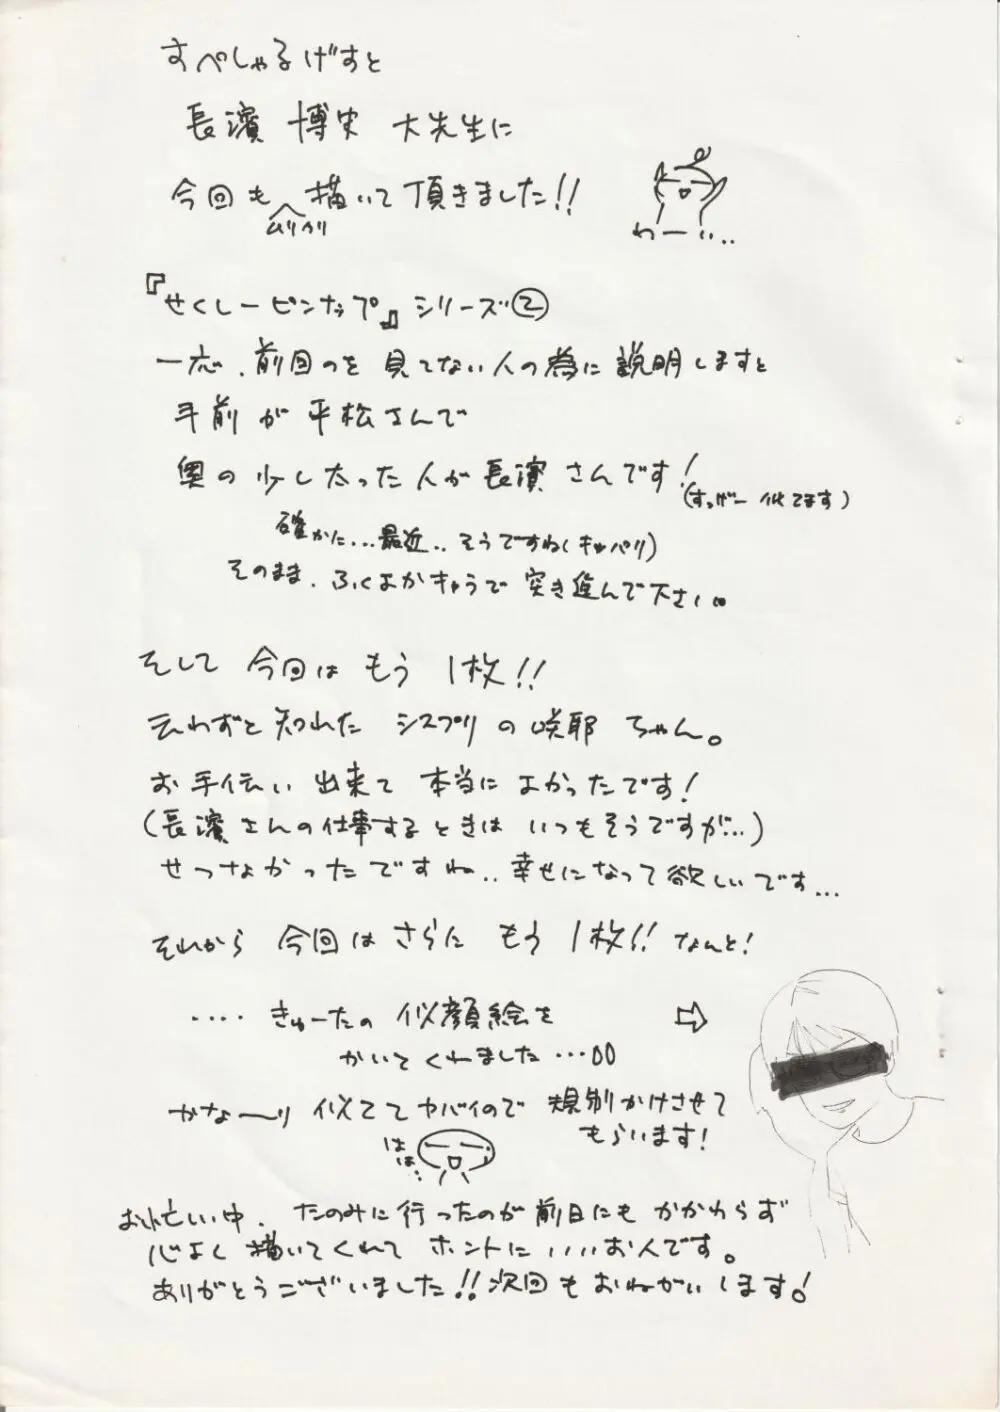 すぺしゃるげすと
長濱 博史 大先生に
今回も ムリクリ 描いて頂きました!!
わーい..
『せくしーピンナップ』シリーズ②
一応、前回のを見てない人の為に説明しますと
手前が平松さんで
奥の少し太った人が長濱さんです!
(すっげー似てます)
確かに...最近..そうですね(キッパリ)
そのまま、ふくよかキャラで突き進んで下さい。
そして今回はもう1枚!!
云わずと知れた シスプリの咲耶ちゃん。
お手伝い出来て本当によかったです!
(長濱さんの仕事するときはいつもそうですが...)
せつなかったですね..幸せになって欲しいです...
それから今回はさらにもう1枚!!なんと!
....きゅーたの似顔絵を
かいてくれました...
⇨
かな〜り似ててヤバイので規制かけさせて
もらいます!
はは...
お忙しい中、たのみに行ったのが前日にもかかわらず
心よく描いてくれてホントにいいお人です。
ありがとうございました!!次回もおねがいします!